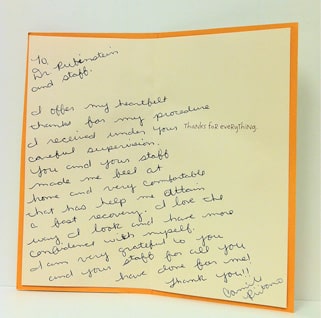 To,
Dr Rubinstein
and staff.
I offer my heartfelt
thanks for my procedure
I received under your
Thanks for everything.
careful supervision.
You and your staff
made me feel at
home and very comfortable
that has help me attain
a fast recovery. I love the
way I look and have more
confidence with myself.
I am very grateful to you
and your staff for all you
have done for me!
Thank you!!